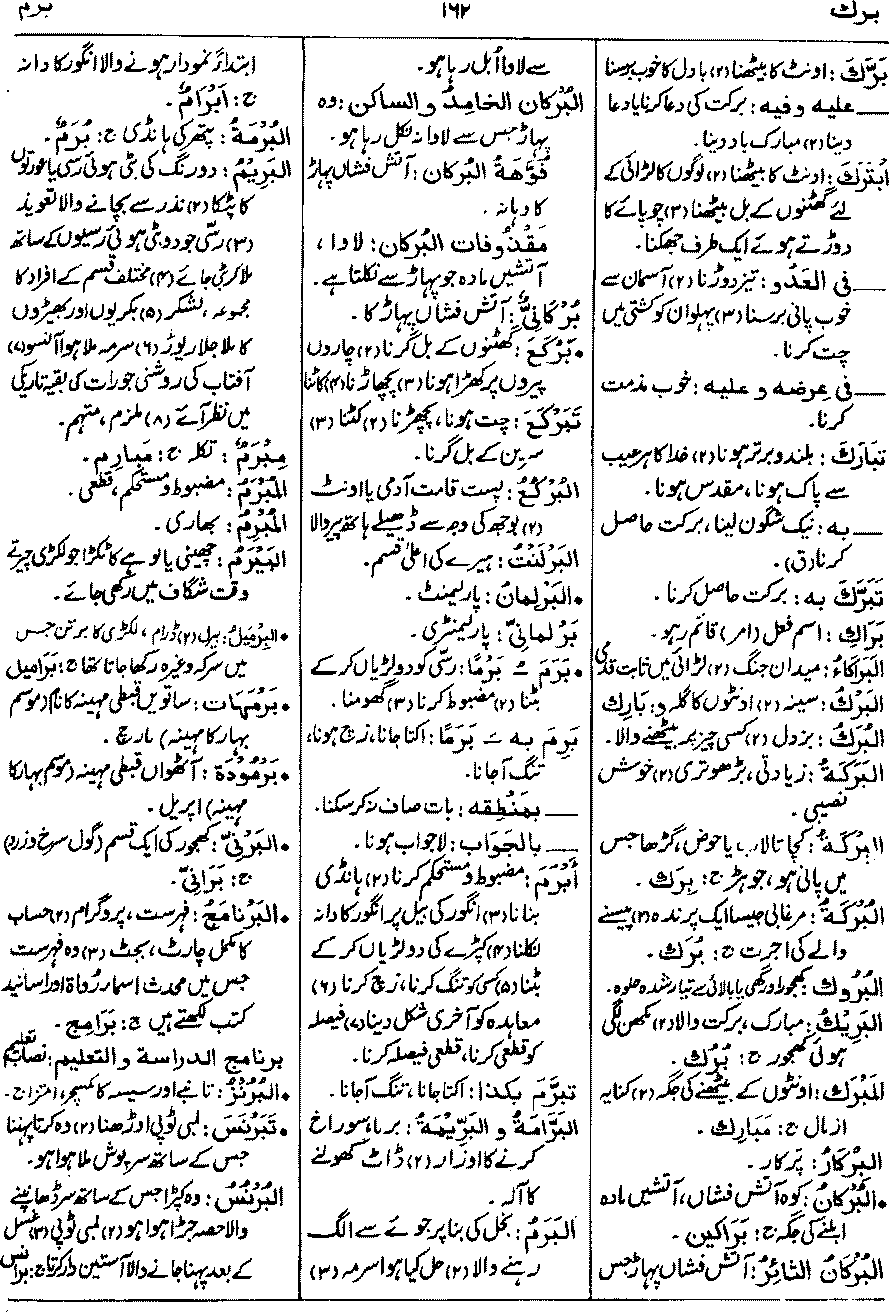 برك ۱۶۲ برم
بَرَّكَ : اونٹ کا بیٹھنا (۲) بادل کا خوب برسنا
ــــ عليه وفيه : برکت کی دعا کرنا یا دعا
دینا (۲) مبارک باد دینا.
ابْتَرَكَ : اونٹ کا بیٹھنا (۲) لوگوں کا لڑائی کے
لئے گھٹنوں کے بل بیٹھنا (۳) چوپائے کا
دوڑتے ہوئے ایک طرف جھکنا.
ــــ فى العَدْوِ : تیز دوڑنا (۲) آسمان سے
خوب پانی برسنا (۳) پہلوان کو کشتی میں
چت کرنا.
ــــ فى عرضه و عليه : خوب مذمت
کرنا.
تَبَارَكَ : بلند و برتر ہونا (۲) خدا کا ہر عیب
سے پاک ہونا، مقدس ہونا.
ــــ به : نیک شگون لینا، برکت حاصل
کرنا (ق).
تَبَرَّكَ به : برکت حاصل کرنا.
بَرَاكِ : اسم فعل (امر) قائم رہو.
البَرَاكَاءُ : میدان جنگ (۲) لڑائی میں ثابت قدمی
البَرْكُ : سینہ (۲) اونٹوں کا گلہ و: بَارِك
البُرَكُ : بزدل (۲) کسی چیز پر بیٹھنے والا.
البَرَكَةُ : زیادتی، بڑھوتری (۲) خوش
نصیبی.
البِرْكَةُ : کچا تالاب یا حوض، گڑھا جس
میں پانی ہو، جوہڑ ج: بِرَك.
البُرْكَةُ : مرغابی جیسا ایک پرندہ (۲) پیسنے
والے کی اجرت ج: بُرَك.
البُرُوك : کھجور اور گھی یا بالائی سے تیار شدہ حلوہ.
البَرِيْكُ : مبارک، برکت والا (۲) مکھن لگی
ہوئی کھجور ج: بُرُك.
المَبْرَك : اونٹوں کے بیٹھنے کی جگہ (۲) کنایہ
از مال ج: مَبَارِك.
البِرْكَارُ : پَرکار.
• البُرْكَانُ : کوہ آتش فشاں، آتشیں مادہ
ابلنے کی جگہ ج: بَرَاكين.
البُرْكَانُ الثَّائِرُ : آتش فشاں پہاڑ جس
سے لاوا اُبل رہا ہو.
البُرْكان الخامدُ و الساكن : وہ
پہاڑ جس سے لاوا نہ نکل رہا ہو.
فُوَّهَةُ البُركان : آتش فشاں پہاڑ
کا دہانہ.
مَقْذُوفات البُركان : لاوا،
آتشیں مادہ جو پہاڑ سے نکلتا ہے.
بُرْكَانِيٌّ : آتش فشاں پہاڑ کا.
• بَرْكَعَ : گھٹنوں کے بل گرنا (۲) چاروں
پیروں پر کھڑا ہونا (۳) پچھاڑنا (۴) کاٹنا
تَبَرْكَعَ : چت ہونا، پچھڑنا (۲) کٹنا (۳)
سرین کے بل گرنا.
البُرْكُعُ : پست قامت آدمی یا اونٹ
(۲) بوجھ کی وجہ سے ڈھیلے ہاتھ پیر والا
البَرْلَنْتُ : ہیرے کی اعلیٰ قسم.
• البَرْلِمانُ : پارلیمنٹ.
بَرْلمانيٌّ : پارلیمنٹری.
• بَرَمَ ــُ بَرْمًا : رسّی کو دو لڑیاں کر کے
بٹنا (۲) مضبوط کرنا (۳) گھومنا.
بَرِمَ به ــَ بَرَمًا : اکتا جانا، زچ ہونا،
تنگ آجانا.
ــــ بمَنْطِقه : بات صاف نہ کر سکنا.
ــــ بالجَوَاب : لاجواب ہونا.
أبْرَمَ : مضبوط و مستحکم کرنا (۲) ہانڈی
بنانا (۳) انگور کی بیل پر انگور کا دانہ
نکلنا (۴) کپڑے کی دو لڑیاں کر کے
بٹنا (۵) کسی کو تنگ کرنا، زچ کرنا (۶)
معاہدہ کو آخری شکل دینا (۷) فیصلہ
کو قطعی کرنا، قطعی فیصلہ کرنا.
تبرَّمَ بكذا : اکتا جانا، تنگ آجانا.
البَرَّامَةُ و البَرِّيْمَةُ : برما، سوراخ
کرنے کا اوزار (۲) ڈاٹ کھولنے
کا آلہ.
البَرَمُ : بخل کی بنا پر جوئے سے الگ
رہنے والا (۲) حل کیا ہوا سرمہ (۳)
ابتداءً نمودار ہونے والا انگور کا دانہ
ج: أَبْرَامٌ.
البُرْمَةُ : پتھر کی ہانڈی ج: بُرَمٌ.
البَرِيْمُ : دو رنگ کی بٹی ہوئی رسی یا عورتوں
کا پٹکا (۲) نذر سے بچانے والا تعویذ
(۳) رسّی جو دو بٹی ہوئی رسیوں کے ساتھ
ملا کر بٹی جائے (۴) مختلف قسم کے افراد کا
مجموعہ، لشکر (۵) بکریوں اور بھیڑوں
کا ملا جلا ریوڑ (۶) سرمہ ملا ہوا آنسو (۷)
آفتاب کی روشنی جو رات کی بقیہ تاریکی
میں نظر آئے (۸) ملزم، متہم.
مِبْرَمٌ : تکلہ ج: مَبَارِم.
المُبْرَمُ : مضبوط و مستحکم، قطعی.
المُبْرِمُ : بھاری.
البَيْرَمُ : چھینی یا لوہے کا ٹکڑا جو لکڑی چیرتے
وقت شگاف میں رکھی جائے.
• البِرْمِيْلُ : بیرل (۲) ڈرام، لکڑی کا برتن جس
میں سرکہ وغیرہ رکھا جاتا تھا ج: بَرَاميل
• بَرْمَهَات : ساتویں قبطی مہینہ کا نام (موسم
بہار کا مہینہ) مارچ.
• بَرْمُوْدَة : آٹھواں قبطی مہینہ (موسم بہار کا
مہینہ) اپریل.
• البَرْنِيّ : کھجور کی ایک قسم (گول سرخ و زرد)
ج: بَرَانِيّ.
• البَرْنَامَجُ : فہرست، پروگرام (۲) حساب
کا مکمل چارٹ، بجٹ (۳) وہ فہرست
جس میں محدث اسماء رُواة اور اسانید
کتب لکھتے ہیں ج: بَرَامِج.
برنامج الدراسة و التعليم : نصاب تعلیم
• البُرُنْزُ : تانبے اور سیسہ کا مکسچر، امتزاج.
• تَبَرْنَسَ : لمبی ٹوپی اوڑھنا (۲) وہ کرتا پہننا
جس کے ساتھ سرپوش ملا ہوا ہو.
البُرْنُسُ : وہ کپڑا جس کے ساتھ سر ڈھانپنے
والا حصہ جڑا ہوا ہو (۲) لمبی ٹوپی (۳) غسل
کے بعد پہنا جانے والا آستین دار کرتا ج: بَرَانس